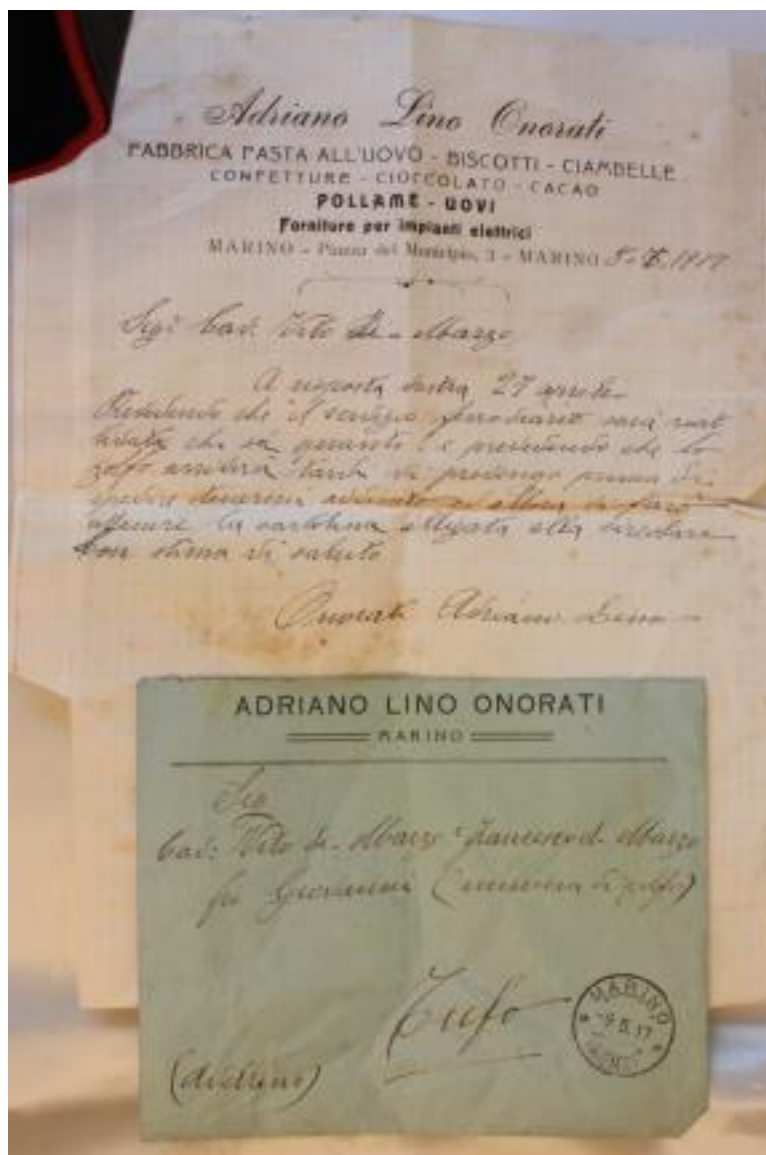 Adriano Lino Onorati
FABBRICA PASTA ALL'UOVO - BISCOTTI - CIAMBELLE
CONFETTURE - CIOCCOLATO - CACAO
POLLAME - UOVI
Forniture per impianti elettrici
MARINO - Piazza del Municipio, 3 - MARINO
Sig. Cav. Vito di Marzo
A risposta vostra 27 aprile
che il servizio ferroviario sarà
che sa quanto e prevedendo che lo
zolfo arriverà tardi vi prima di
spedire avviso e allora vi farò
la cartolina allegata alla circolare
Con stima vi saluto
Onorati Adriano Lino
ADRIANO LINO ONORATI
MARINO
Sig
Cav: Vito di Marzo Francesco di Marzo
fu Giovanni (miniera di zolfo)
Tufo
(Avellino)
MARINO
-9.5.17